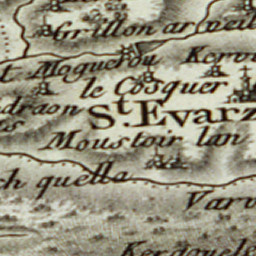 Grillon
Moguerou Kerv
le Cosquer
draon St. Evarz
Moustoir lan
ch quella
Varv
Kergouele